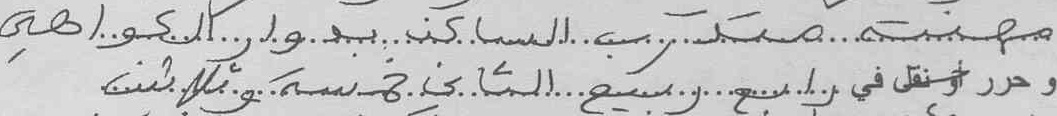 مهنته متدرب الساكن بدوار الكواهي
و حرر أو نقل في رابع ربيع الثاني خمسة وثلاثين